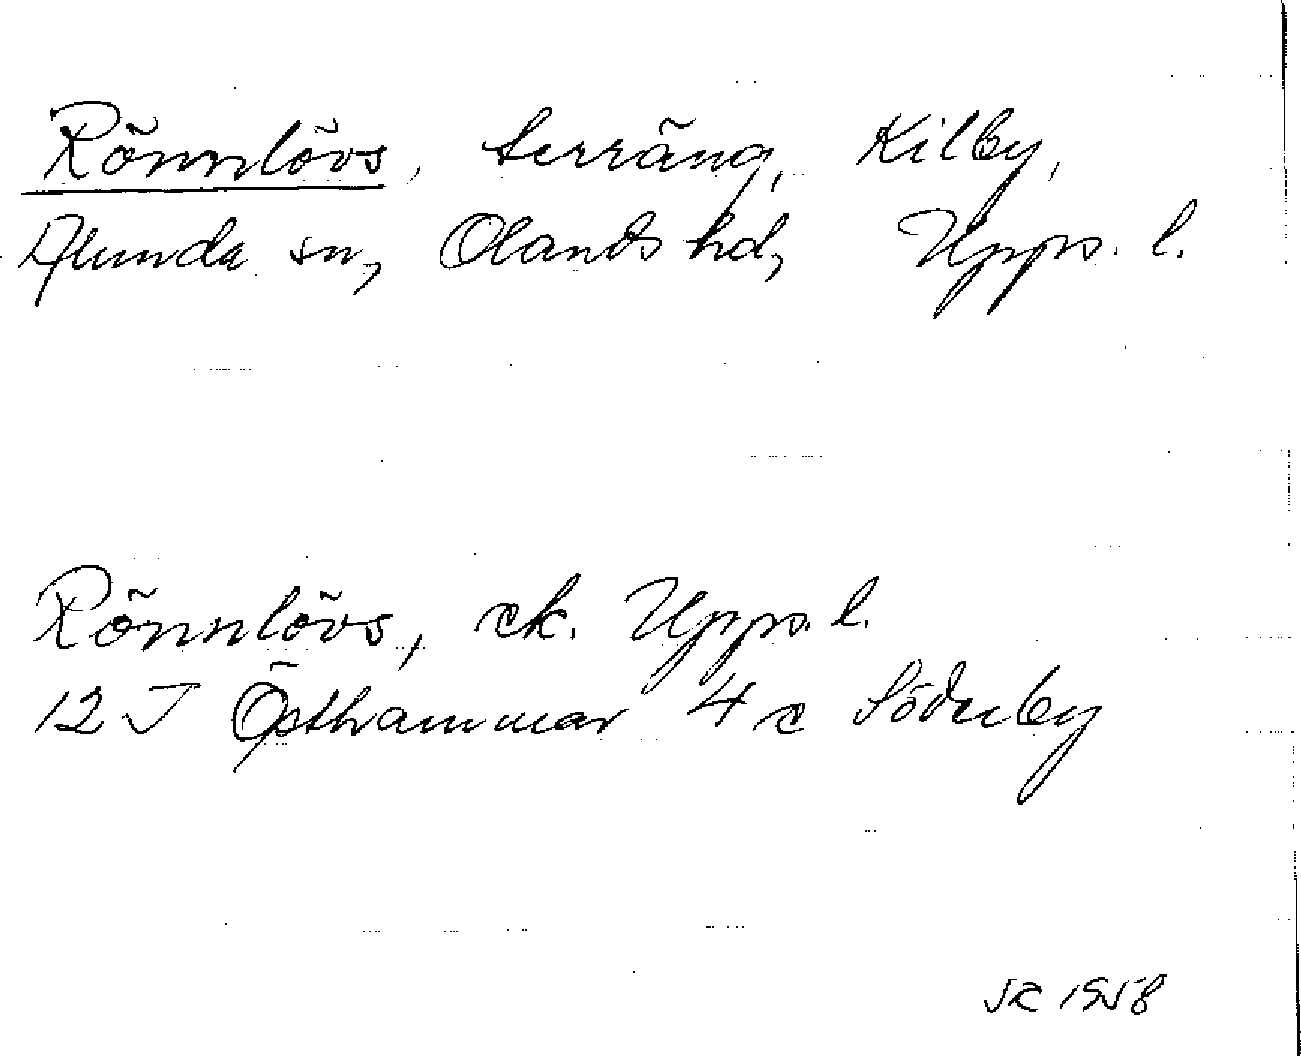 Rönnlövs, terräng, Kilby,
Alunda sn, Olands hd, Upps. l.
Rönnlövs, ek. Upps. l.
12 J Östhammar 4 c Söderby
JR 1958